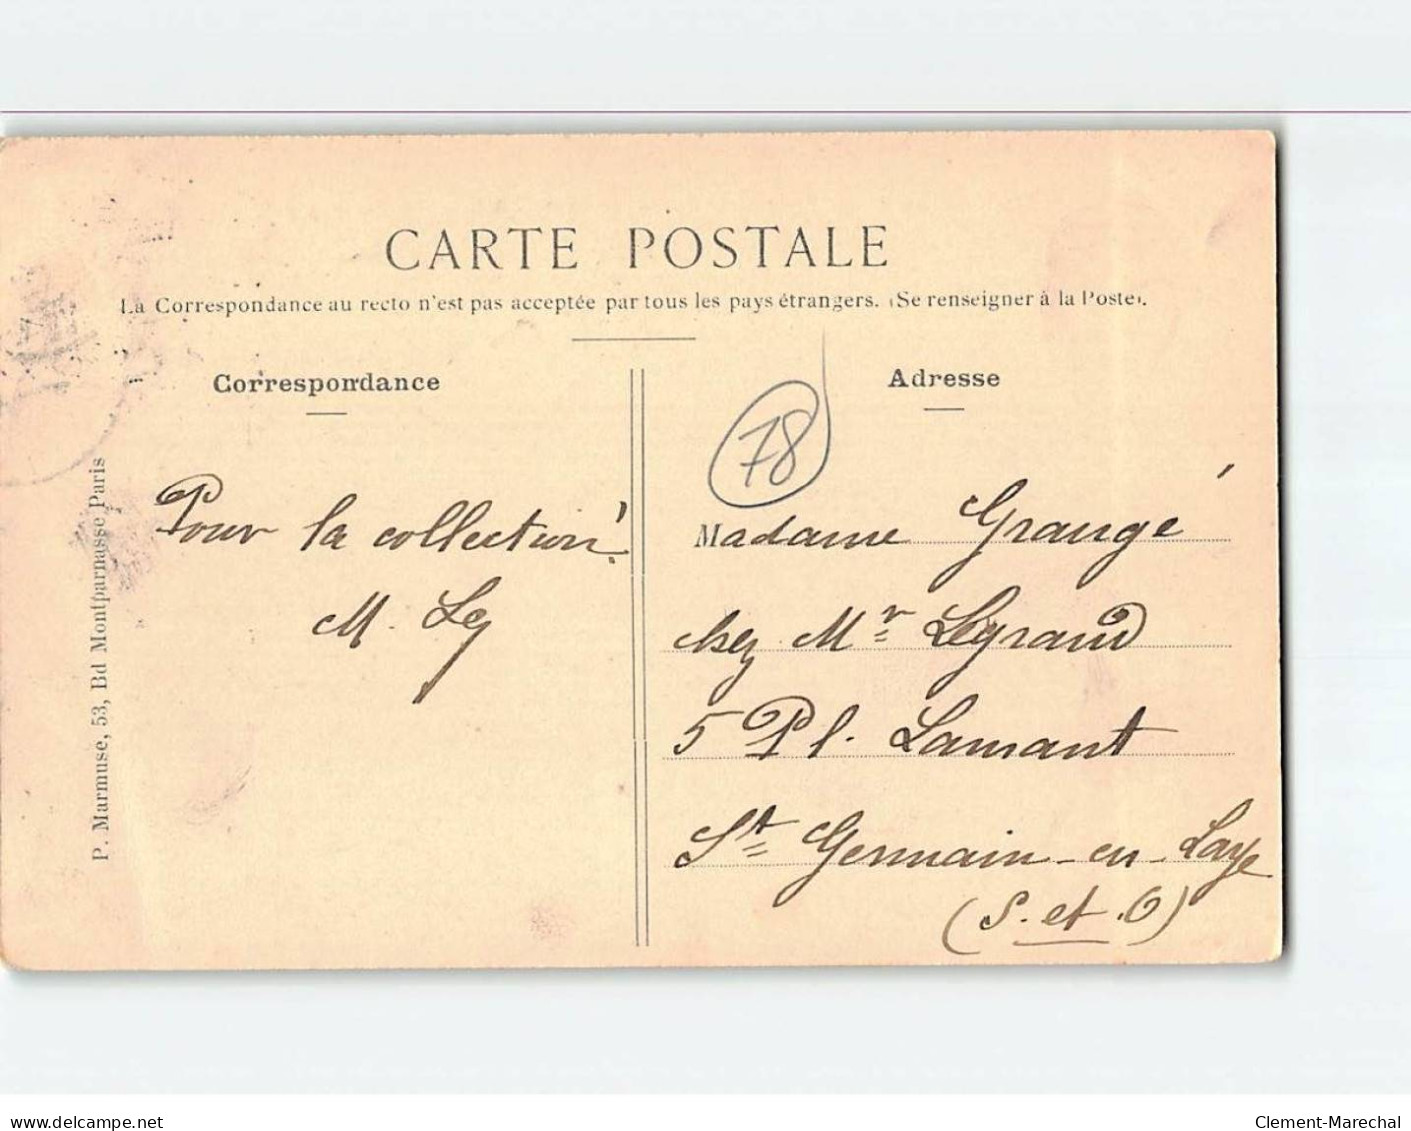 CARTE POSTALE
La Correspondance au recto n'est pas acceptée par tous les pays étrangers. (Se renseigner à la Poste).
Correspondance
Adresse
78
P. Marmuse, 53, Bd Montparnasse Paris
Pour la collection!
M. Ley
Madame Grangé
chez Mr Legrand
5 Pl. Lamant
St Germain-en-Laye
(S. et .O)
delcampe.net
Clement-Marechal